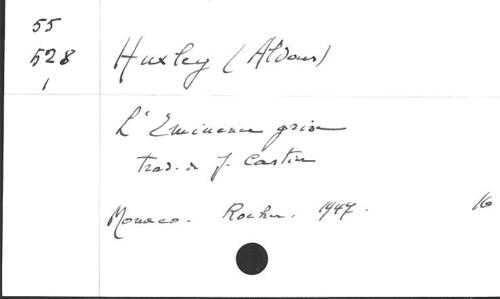 55
528
1
Huxley (Aldous)
L'Eminence grise
trad. de J. Castier
Monaco. Rocher. 1947. 16